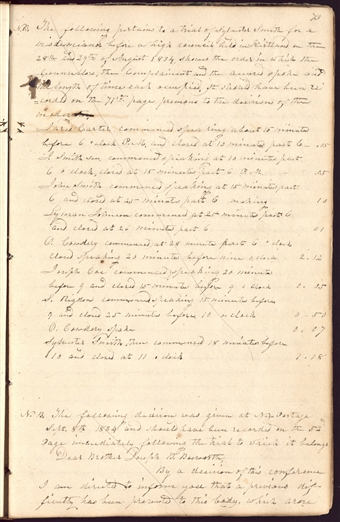 79
N.B. The following pertains to a trial of Sylvester Smith for a
misdemeanor before a high council held in Kirtland on the
28th and 29th of August 1834, shows the order in which the
Councellors, the Complainant and the accused spoke and
the length of time each occupied, It should have been re
corded on the 75th page previous to the decision of the
Jared Carter commenced speaking about 15 minutes
before 6 o'clock P.M. and closed at 10 minutes past 6 .25
commenced speaking at 10 minutes past
6 o'clock, closed at 15 minutes past 6 P.M. .05
John Smith commenced speaking at 15 minutes past
6 and closed at 25 minutes past 6 making 10
Lyman Johnson commenced at 25 minutes past 6
and closed at 26 minutes past 6 01
O. Cowdery commenced at 28 minutes past 6 o'clock
closed speaking 20 minutes before nine o'clock 2.12
Joseph Coe commenced speaking 20 minutes
before 9 and closed 15 minutes before 9 o'clock 0.05
S. Rigdon commenced speaking 15 minutes before
9 and closed 25 minutes before 10 o'clock 0.50
O. Cowdery spoke 0.07
Sylvester Smith then commenced 18 minutes before
10 and closed at 11 o'clock 1.18
N.B. The following decision was given at New Portage
Sept. 8th 1834 and should have been recorded on the
Page immediately following the trial to which it belongs
Dear Brother Joseph H. Bosworth,
By a decision of this conference
I am directed to inform you that a previous dif-
ficulty has been presented to this body, which arose